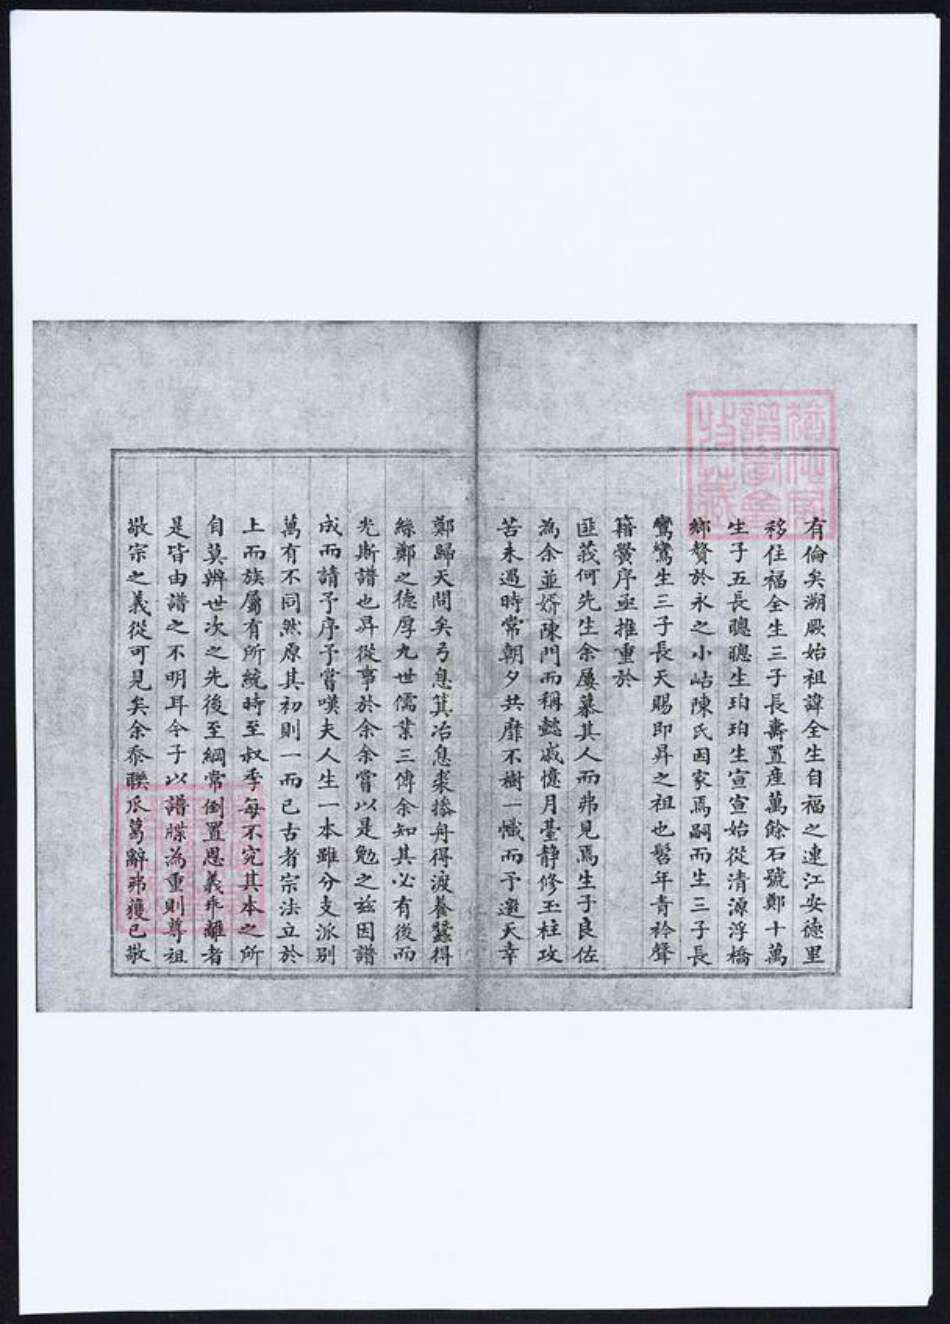 有倫矣溯厥始祖諱全生自福之連江安德里
移住福全生三子長壽置產萬餘石號鄭十萬
生子五長聰聰生珀珀生宣宣始從清源浮橋
鄉贅於永之小岵陳氏因家焉嗣而生三子長
鸞鸞生三子長天賜即昇之祖也髫年青衿聲
籍黌序亟推重於
匪莪何先生余屢慕其人而弗見焉生子良佐
為余並婿陳門而稱懿戚憶月臺靜修玉柱攻
苦未遇時常朝夕共靡不樹一幟而予邀天幸
鄭歸天問矣弓息箕冶息裘搽舟得渡養蠶得
絲鄭之德厚九世儒業三傳余知其必有後而
光斯譜也昇從事於余余嘗以是勉之茲因譜
成而請予序予嘗嘆夫人生一本雖分支派別
萬有不同然原其初則一而已古者宗法立於
上而族屬有所統時至叔季每不究其本之所
自莫辨世次之先後至綱常倒置恩義乖離者
是皆由譜之不明耳今子以譜牒為重則尊祖
敬宗之義從可見矣余忝聯瓜葛辭弗獲已敬